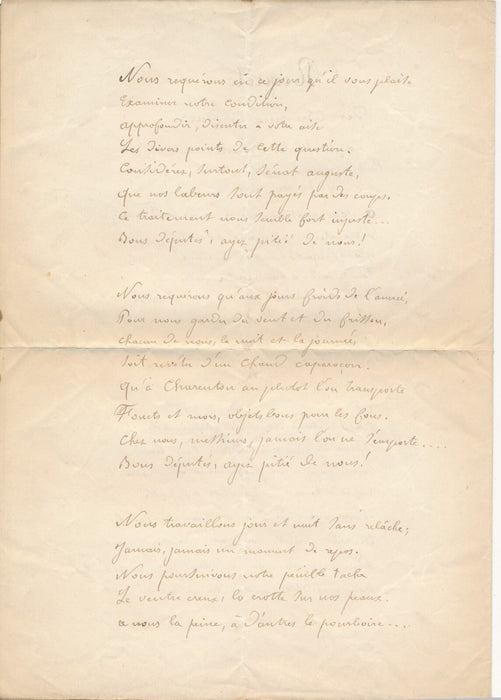 Nous requérons en ce jour qu'il vous plaise
Examiner notre condition,
approfondir, discuter à votre aise
Les divers points de cette question.
Considérez, surtout, Sénat auguste,
Que nos labeurs sont payés par des coups.
Ce traitement nous semble fort injuste...
Bons députés, ayez pitié de nous!
Nous requerons qu'aux jours froids de l'année,
Pour nous garder du vent et du frisson,
chacun de nous, la nuit et la journée,
soit revêtu d'un chaud caparaçon.
Qu'à Charenton au plutôt l'on transporte
Fouets et mors, objets bons pour les fous.
Chez nous, messieurs, jamais l'on ne s'emporte....
Bons députés, ayez pitié de nous!
Nous travaillons jour et nuit sans relâche;
Jamais, jamais un moment de repos.
Nous poursuivons notre pénible tache
Le ventre creux, la crotte sur nos peaux.
a nous la peine, à d'autres le pourboire....